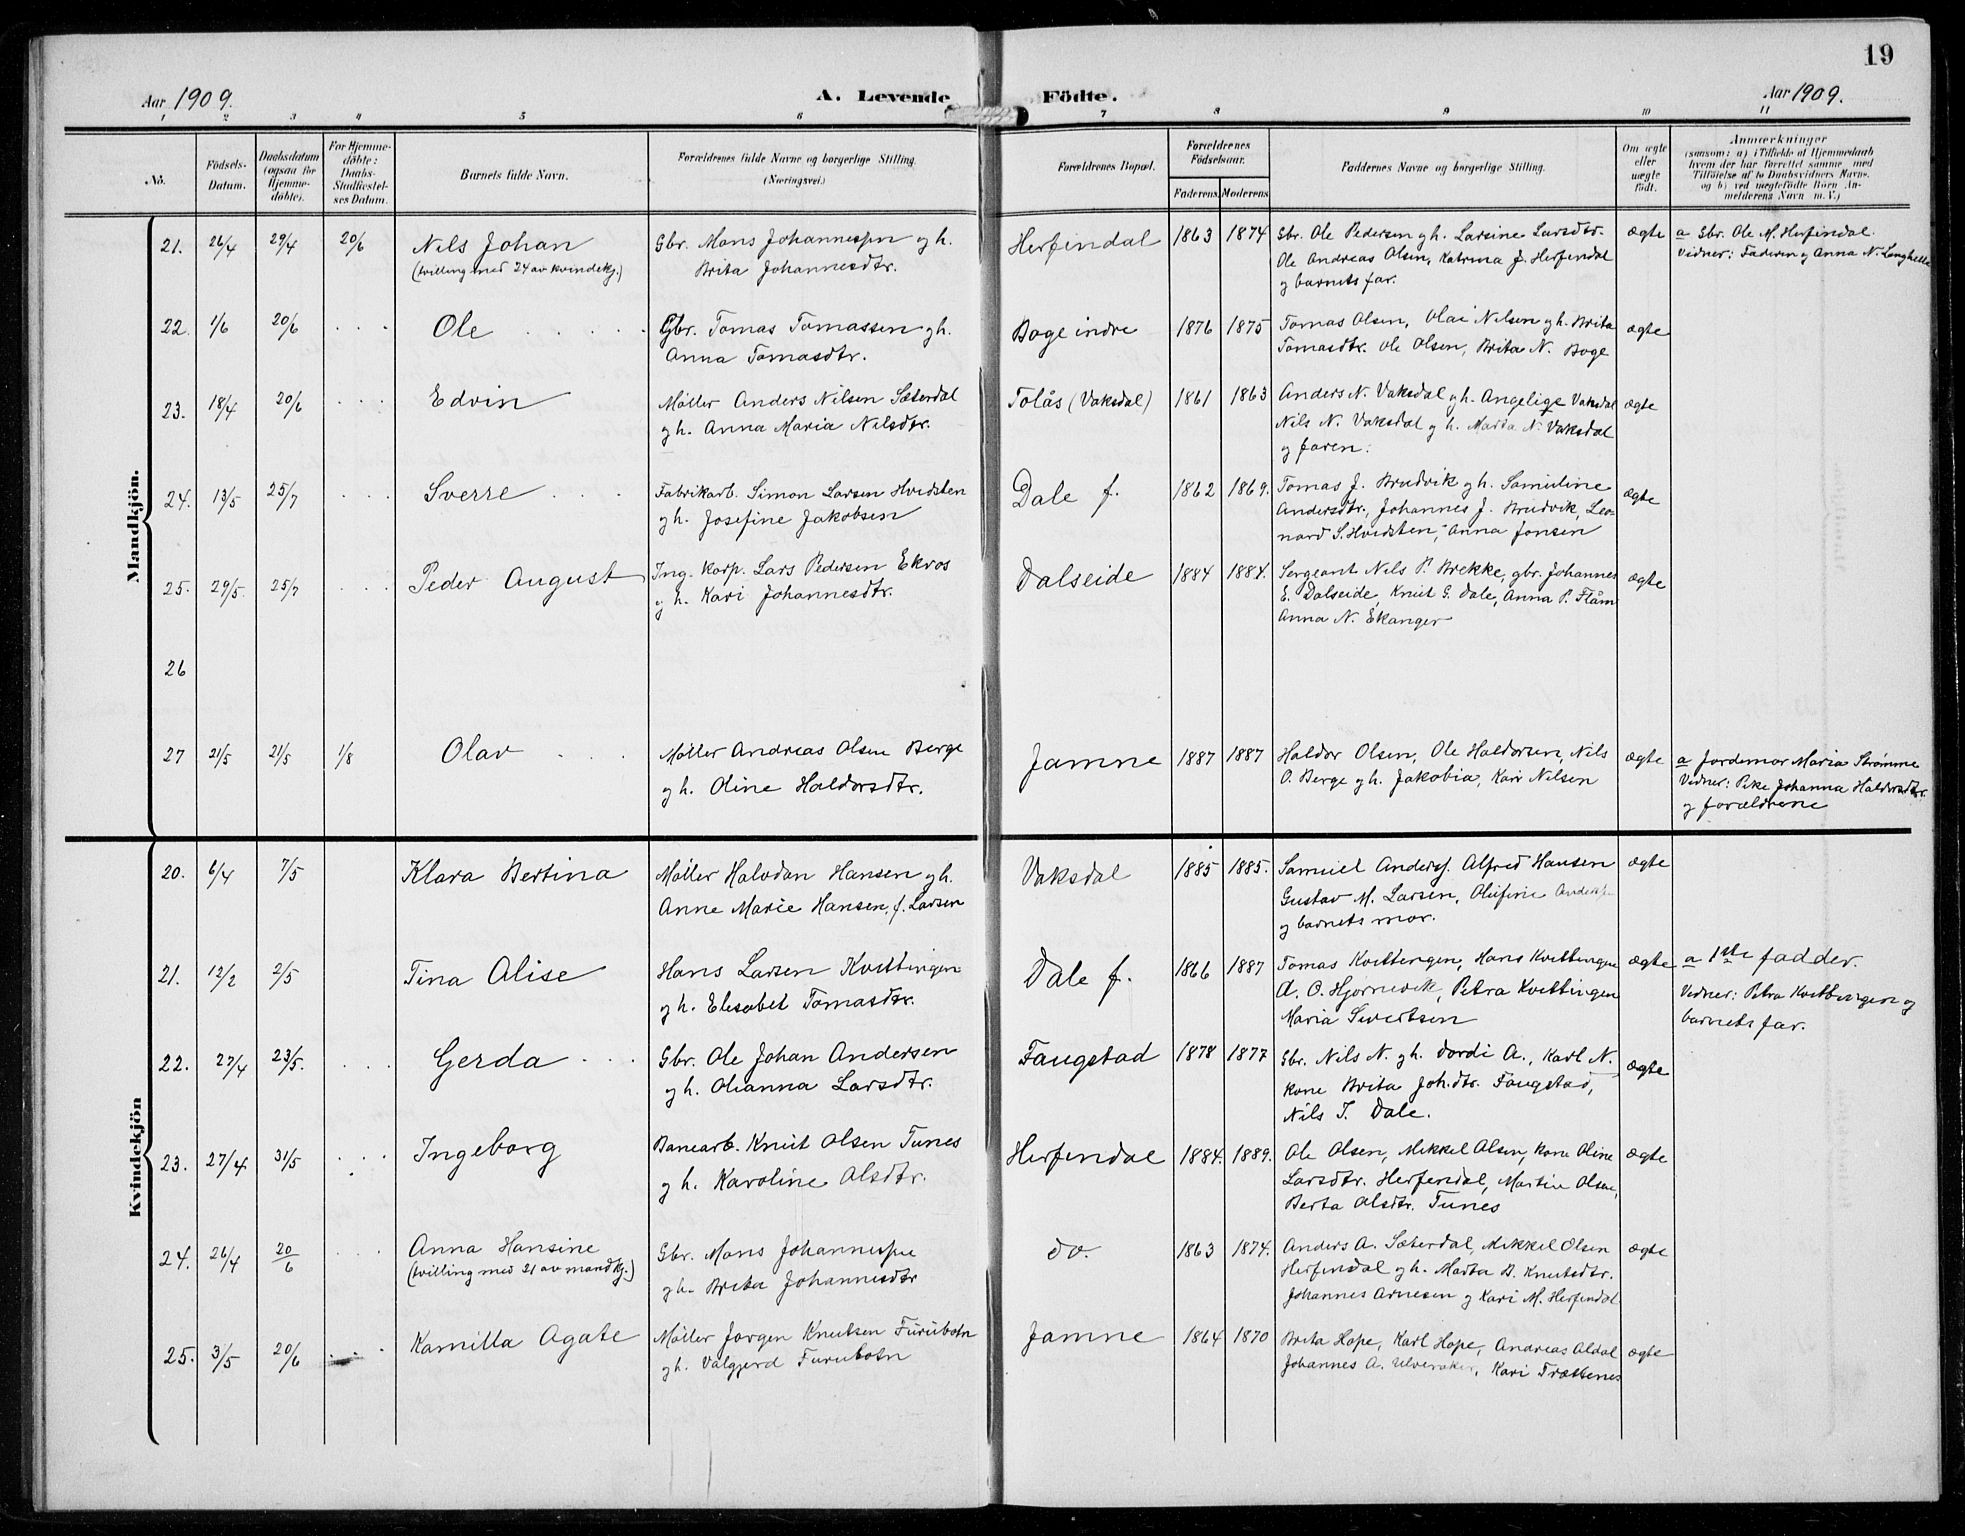 19
Aar 1909.
A. Levende Födte.
Aar 1909.
1 2 3 4 5 6 7 8 9 10 11
No.
Födsels-Datum.
Daabsdatum (ogsaa for Hjemmedöbte).
For Hjemmedöbte: Daabs-Stadfæstelses Datum.
Barnets fulde Navn.
Forældrenes fulde Navne og borgerlige Stilling.
(Næringsvei.)
Forældrenes Bopæl.
Forældrenes Födselsaar.
Faderens. Moderens.
Faddernes Navne og borgerlige Stilling.
Om ægte eller uægte födt.
Anmærkninger
(saasom: a) i Tilfælde af Hjemmedaab
hvem der har forrettet samme, med
Tilföielse af to Daabsvidners Navne,
og b) ved uægtefödte Börn An-
melderens Navn m. V.)
Mandkjön.
21. 26/4 29/4 20/6 Nils Johan Gbr. Mons Johannessen og h. Herfindal 1863 1874 Gbr. Ole Pedersen og h. Larsine Larsdtr. ægte a Gbr. Ole M. Herfindal.
(tvilling med 24 av kvindekj.) Brita Johannesdtr. Ole Andreas Olsen, Katrina J. Herfindal Vidner: Faderen og Anna N. Langhelle
og barnets far.
22. 1/6 20/6 . . . Ole . . . . . Gbr. Tomas Tomassen og h. Boge indre 1876 1875 Tomas Olsen, Olai Nilsen og h. Brita ægte
Anna Tomasdtr. Tomasdtr. Ole Olsen, Brita N. Boge
23. 18/4 20/6 . . . Edvin Møller Anders Nilsen Sæterdal Tolås (Vaksdal) 1861 1863 Anders N. Vaksdal og h. Angelige Vaksdal ægte
og h. Anna Maria Nilsdtr. Nils N. Vaksdal og h. Marta N. Vaksdal
og faren.
24. 13/5 25/7 . . . Sverre . . . Fabrikarb. Simon Larsen Hvidsten Dale f. 1862 1869. Tomas J. Brudvik og h. Samuline ægte
og h. Josefine Jakobsen Andersdtr., Johannes J. Brudvik, Leo-
nard S. Hvidsten, Anna Jonsen
25. 29/5. 25/7 . . . Peder August Ing. korp. Lars Pedersen Ekros Dalseide 1884 1884. Sergeant Nils P. Brekke, gbr. Johannes ægte
og h. Kari Johannesdtr. E. Dalseide, Knut G. Dale, Anna P. Flåm
Anna N. Ekanger
26
27 21/5 21/5 1/8 Olav . . . Møller Andreas Olsen Berge Jamne 1887 1887 Haldor Olsen, Ole Haldorsen, Nils ægte a Jordemor Maria Strømme
og h. Oline Haldorsdtr. O. Berge og h. Jakobia, Kari Nilsen Vidner: Pike Johanna Haldorsdtr.
og forældrene
Kvindekjön
20. 6/4 7/5 Klara Bertina Møller Halvdan Hansen og h. Vaksdal 1885 1885. Samuel Anders. Alfred Hansen ægte
Anne Marie Hansen, f. Larsen Gustav M. Larsen, Olufine
og barnets mor.
21. 12/2 2/5 Tina Alise Hans Larsen Kvittingen Dale f. 1866 1887 Tomas Kvittingen, Hans Kvittingen ægte a 1ste fadder.
og h. Elisabet Tomasdtr. A. O. Hjørnevik, Petra Kvittingen Vidner: Petra Kvittingen og
Maria Sivertsen barnets far.
22. 27/4 23/5. . . . Gerda . . . Gbr. Ole Johan Andersen Faugstad 1878 1877 Gbr. Nils N. og h. Dordi A., Karl N. ægte
og h. Olianna Larsdtr. kone Brita Joh.dtr. Faugstad,
Nils T. Dale.
23. 27/4 31/5 . . . Ingeborg Banearb. Knut Olsen Tunes Herfindal 1884. 1889. Ole Olsen, Mikkel Olsen, kone Oline ægte
og h. Karoline Olsdtr. Larsdtr. Herfindal, Martin Olsen,
Berta Olsdtr. Tunes
24. 26/4 20/6 . . . Anna Hansine Gbr. Mons Johannessen do. 1863 1874. Anders A. Sæterdal, Mikkel Olsen ægte
(tvilling med 21 av mandkj.) og h. Brita Johannesdtr Herfindal og h. Marta B. Knutsdtr.
Johannes Arnesen og Kari M. Herfindal
25. 3/5 20/6 . . . Kamilla Agate Møller Jørgen Knutsen Furubotn Jamne 1864 1870 Brita Hope, Karl Hope, Andreas Aldal ægte
og h. Valgjerd Furubotn Johannes A. Ulveraker, Kari Trættenes